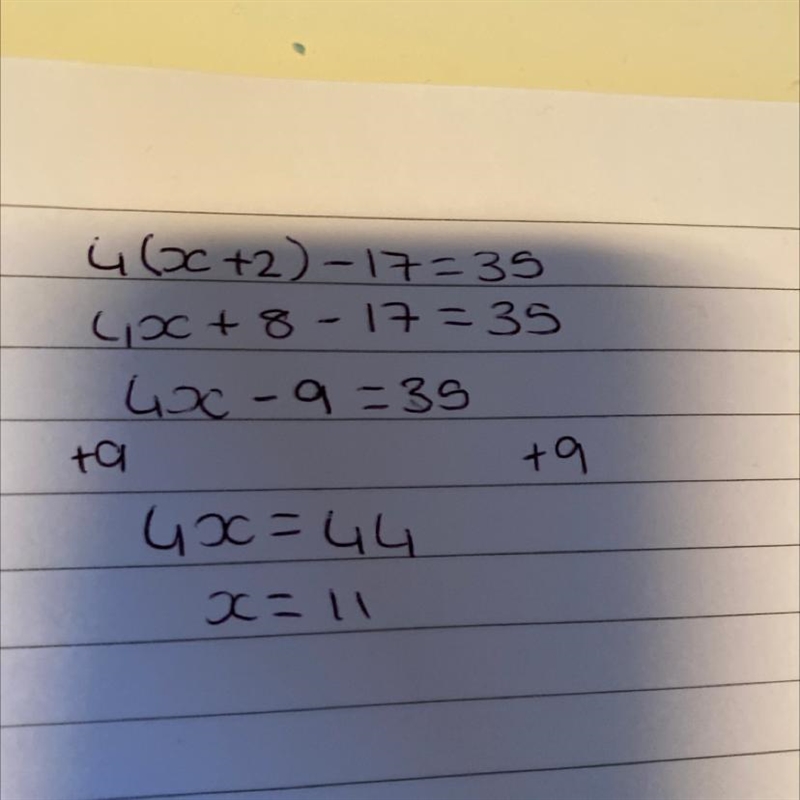 4(x+2)-17=35
4x+8-17=35
4x-9=35
+9 +9
4x=44
x=11